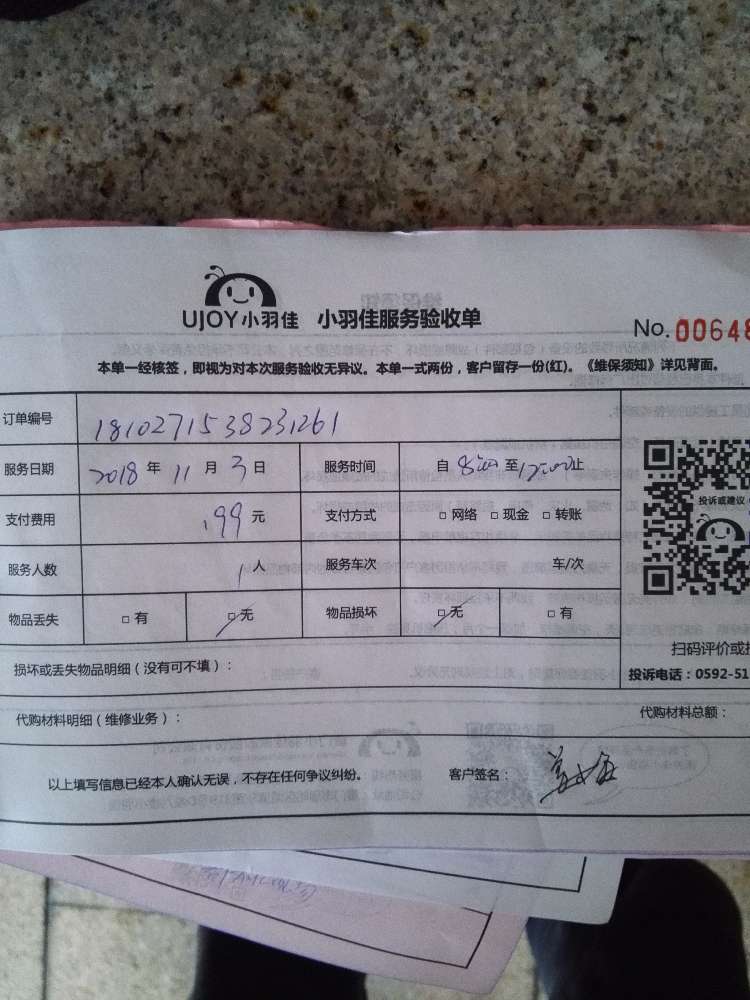 UJOY小羽佳 小羽佳服务验收单
No. 00648
本单一经核签，即视为对本次服务验收无异议。本单一式两份，客户留存一份(红)。《维保须知》详见背面。
订单编号 1810271538231261
服务日期 2018 年 11 月 3 日 服务时间 自 8:00 至 12:00 止
支付费用 199 元 支付方式 □ 网络 □ 现金 □ 转账
投诉或建议
服务人数 1 人 服务车次 车/次
物品丢失 □ 有 □ 无 物品损坏 □ 无 □ 有
扫码评价或
损坏或丢失物品明细（没有可不填）：
投诉电话：0592-51
代购材料明细（维修业务）： 代购材料总额：
以上填写信息已经本人确认无误，不存在任何争议纠纷。 客户签名：